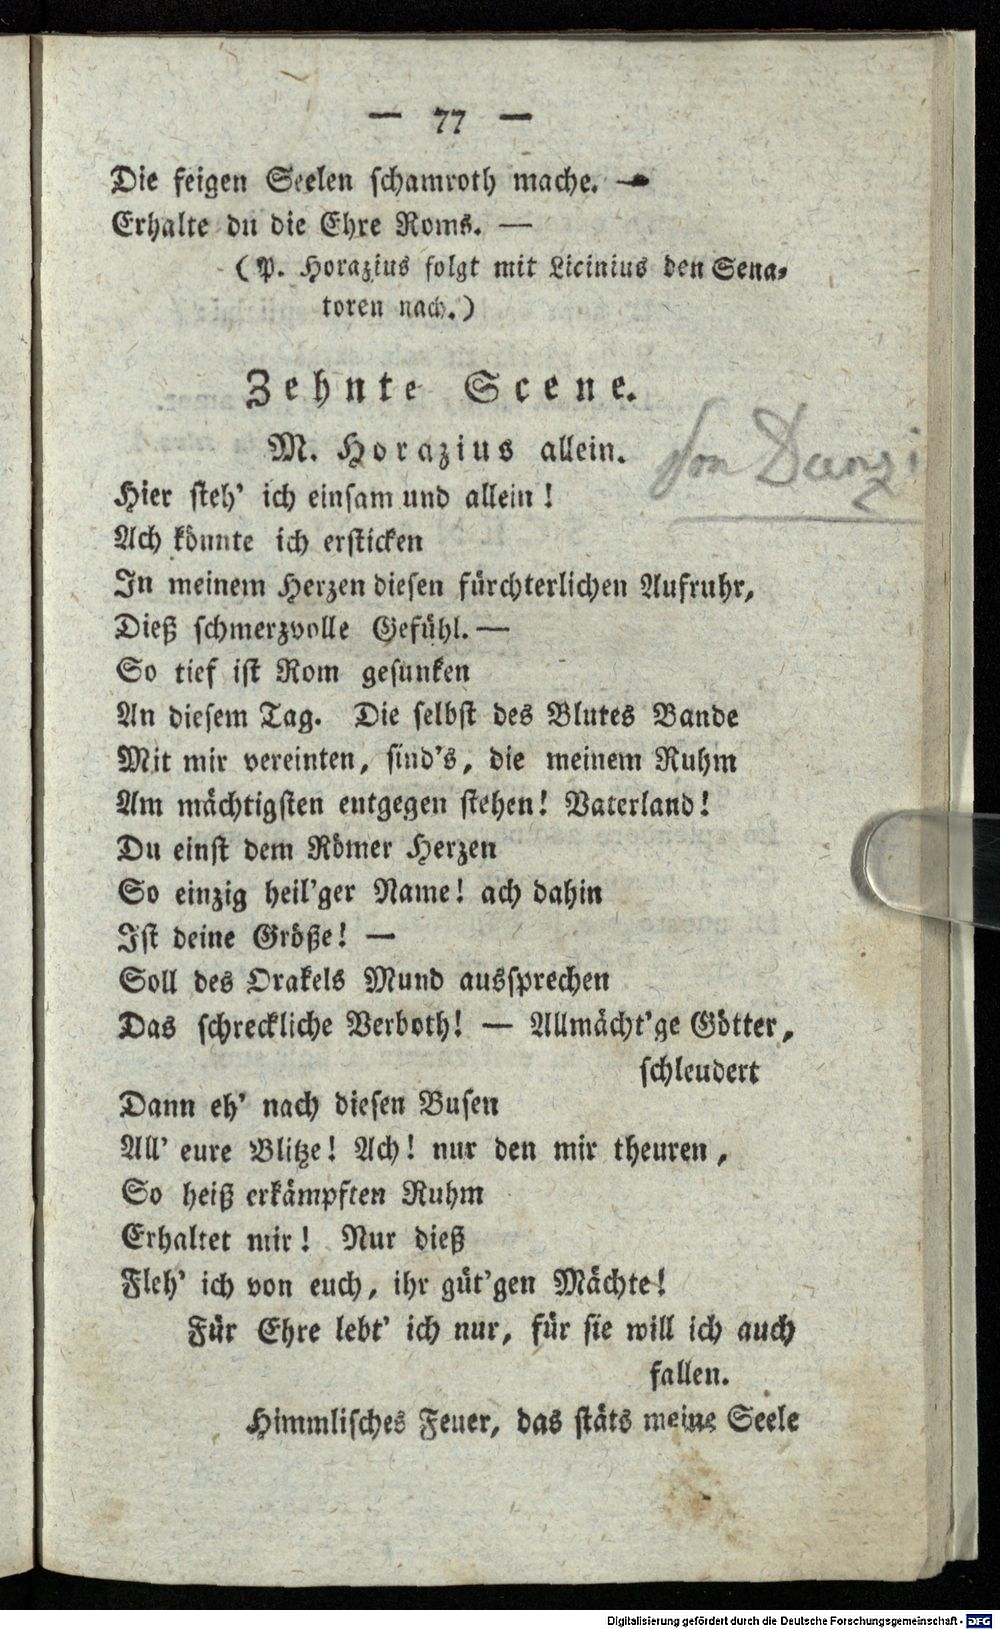 — 77 —
Die feigen Seelen schamroth mache. —
Erhalte du die Ehre Roms. —
(P. Horazius folgt mit Licinius den Sena-
toren nach.)
Zehnte Scene.
M. Horazius allein.
von Danzi
Hier steh' ich einsam und allein!
Ach könnte ich ersticken
In meinem Herzen diesen fürchterlichen Aufruhr,
Dieß schmerzvolle Gefühl. —
So tief ist Rom gesunken
An diesem Tag. Die selbst des Blutes Bande
Mit mir vereinten, sind's, die meinem Ruhm
Am mächtigsten entgegen stehen! Vaterland!
Du einst dem Römer Herzen
So einzig heil'ger Name! ach dahin
Ist deine Größe! —
Soll des Orakels Mund aussprechen
Das schreckliche Verboth! — Allmächt'ge Götter,
schleudert
Dann eh' nach diesen Busen
All' eure Blitze! Ach! nur den mir theuren,
So heiß erkämpften Ruhm
Erhaltet mir! Nur dieß
Fleh' ich von euch, ihr güt'gen Mächte!
Für Ehre lebt' ich nur, für sie will ich auch
fallen.
Himmlisches Feuer, das stäts meine Seele
Digitalisierung gefördert durch die Deutsche Forschungsgemeinschaft - DFG